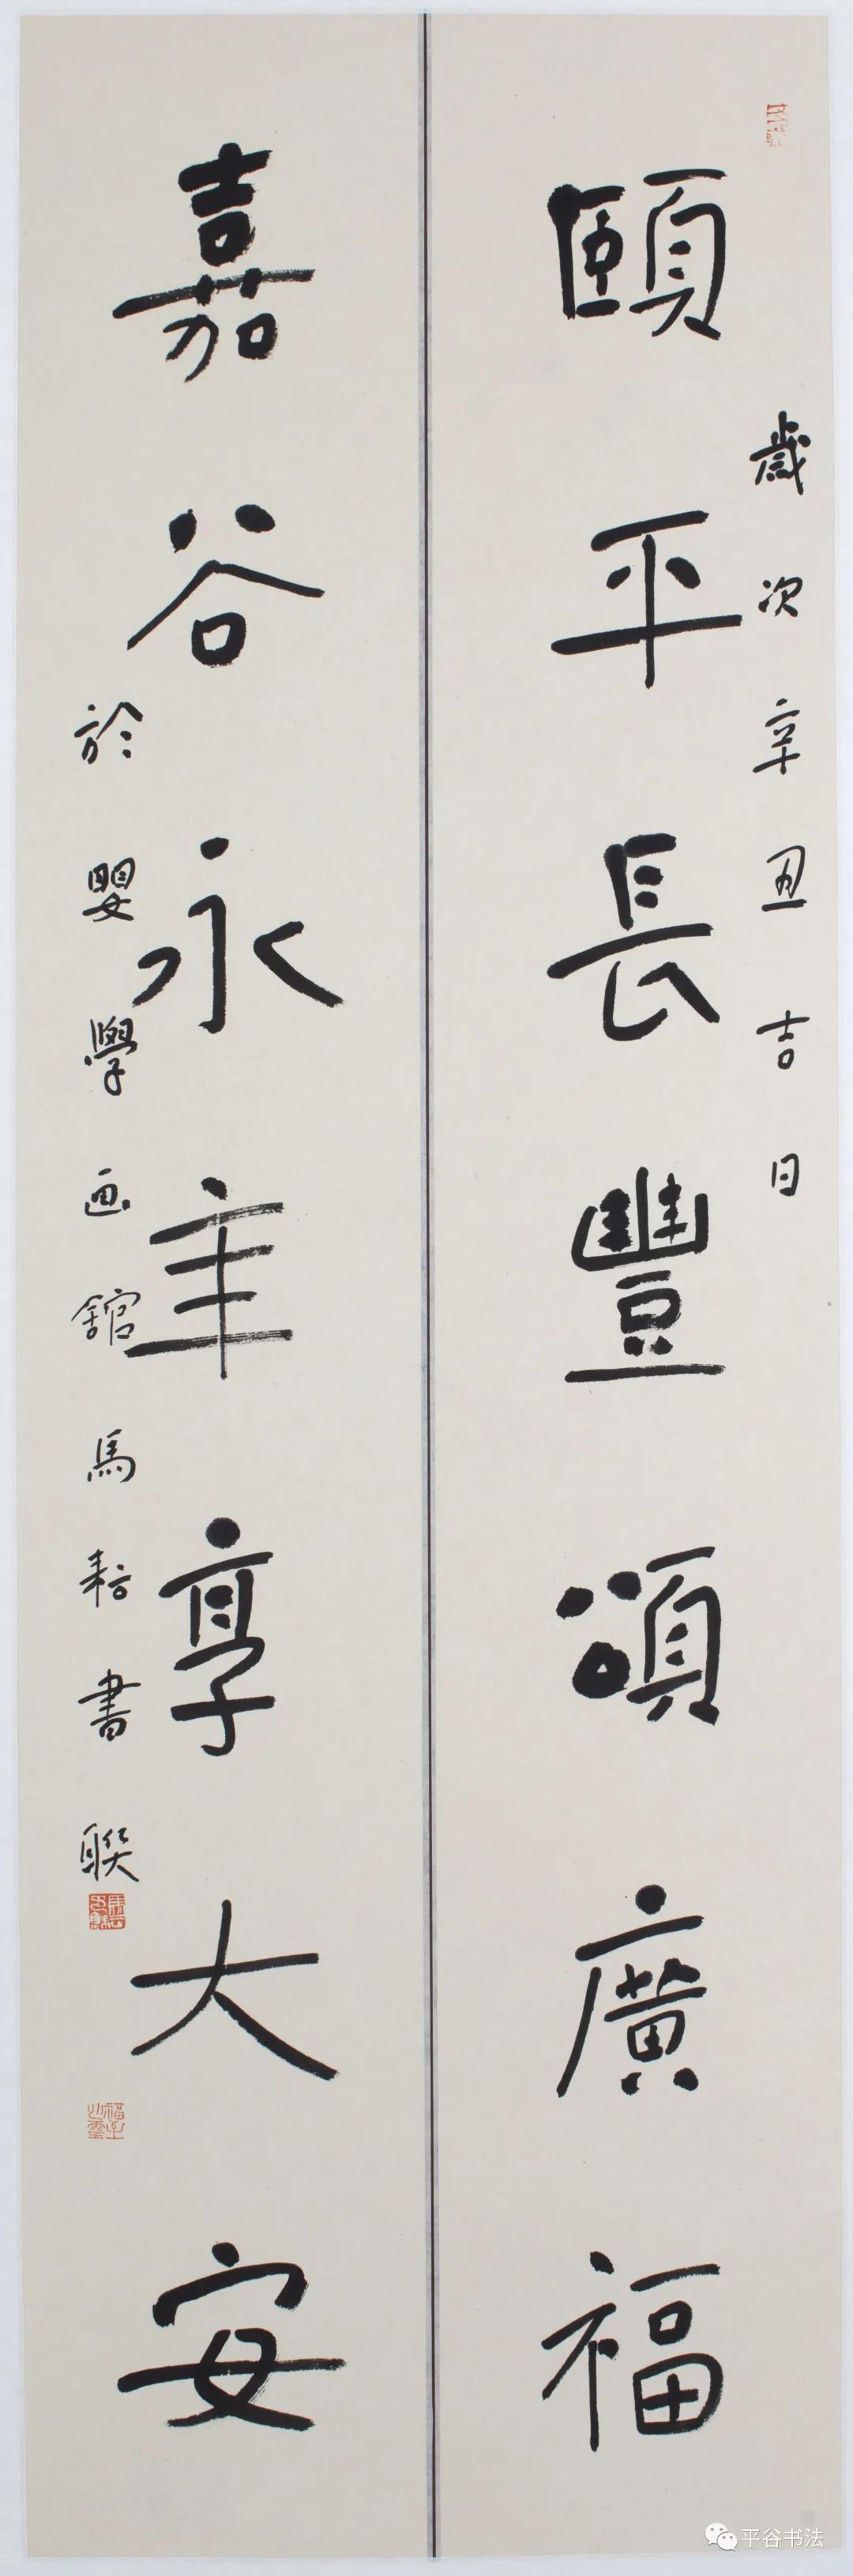 頤平長豐頌廣福
歲次辛丑吉日
嘉谷永年享大安
於嬰學画館馬耕書聯
平谷书法